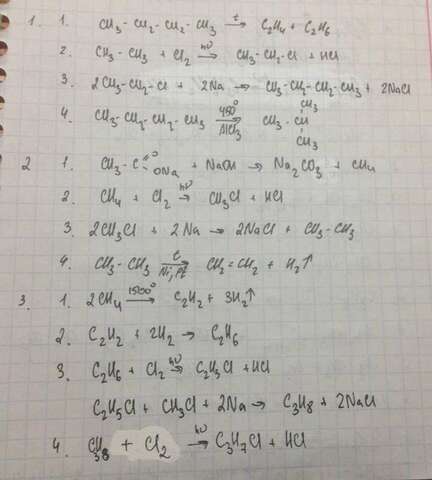 1. 1. CH₃ - CH₂ - CH₂ - CH₃ →(t) C₂H₄ + C₂H₆
2. CH₃ - CH₃ + Cl₂ →(hν) CH₃ - CH₂ - Cl + HCl
3. 2CH₃ - CH₂ - Cl + 2Na → CH₃ - CH₂ - CH₂ - CH₃ + 2NaCl
CH₃
4. CH₃ - CH₂ - CH₂ - CH₃ →(450°, AlCl₃) CH₃ - CH
CH₃
2 1. CH₃ - C =O ONa + NaOH → Na₂CO₃ + CH₄
2. CH₄ + Cl₂ →(hν) CH₃Cl + HCl
3. 2CH₃Cl + 2Na → 2NaCl + CH₃ - CH₃
4. CH₃ - CH₃ →(t, Ni, Pt) CH₂ = CH₂ + H₂↑
3. 1. 2CH₄ →(1500°) C₂H₂ + 3H₂↑
2. C₂H₂ + 2H₂ → C₂H₆
3. C₂H₆ + Cl₂ →(hν) C₂H₅Cl + HCl
C₂H₅Cl + CH₃Cl + 2Na → C₃H₈ + 2NaCl
4. C₃H₈ + Cl₂ →(hν) C₃H₇Cl + HCl